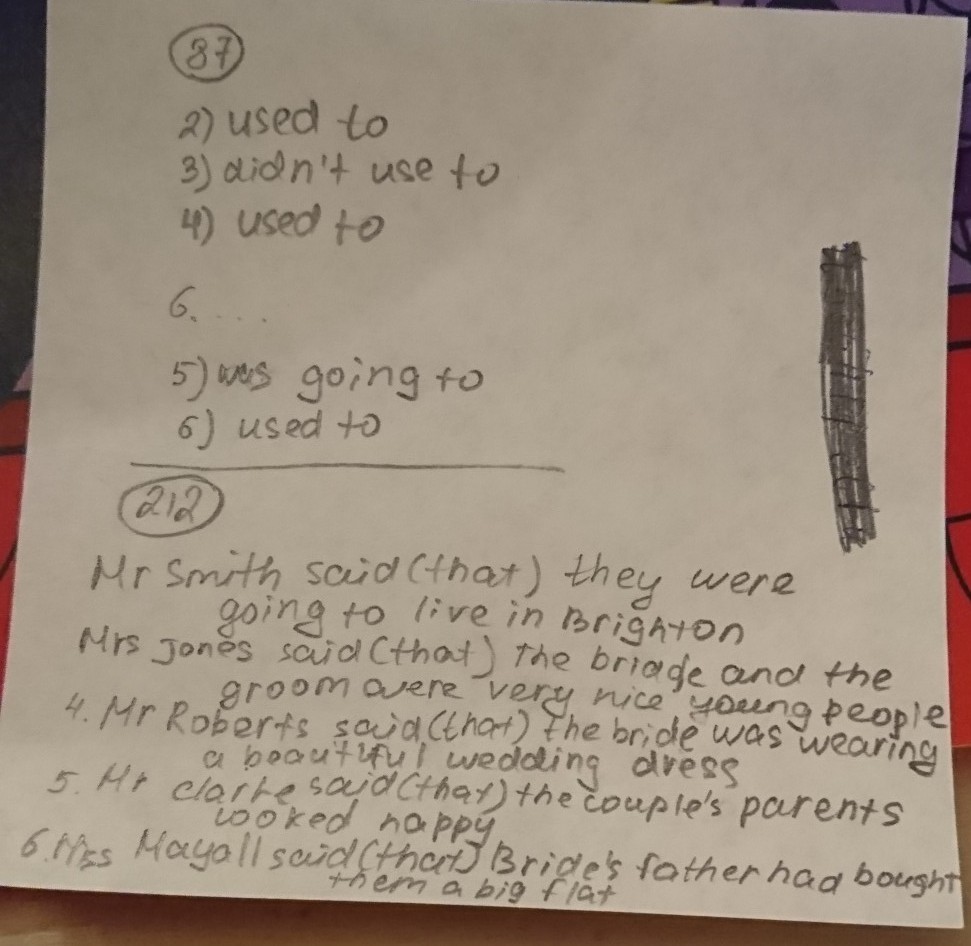 87
2) used to
3) didn't use to
4) used to
6. ....
5) was going to
6) used to
212
Mr Smith said (that) they were
going to live in Brighton
Mrs Jones said (that) The briade and the
groom were very nice young people
4. Mr Roberts said (that) the bride was wearing
a beautiful wedding dress
5. Mr clarke said (that) the couple's parents
looked happy
6. Miss Mayall said (that) Bride's father had bought
them a big flat